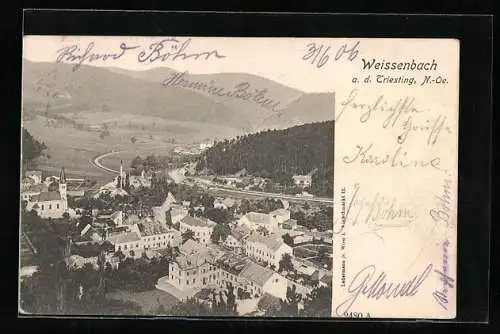 Richard Böhm
3/6 06
Hermine Böhm
Weissenbach
a. d. Triesting, N.-Oe.
Herzlichste
Grüsse
Karoline
Josef Böhm
Böhm
Ledermann jr. Wien I. Fleischmarkt 12.
2480 A